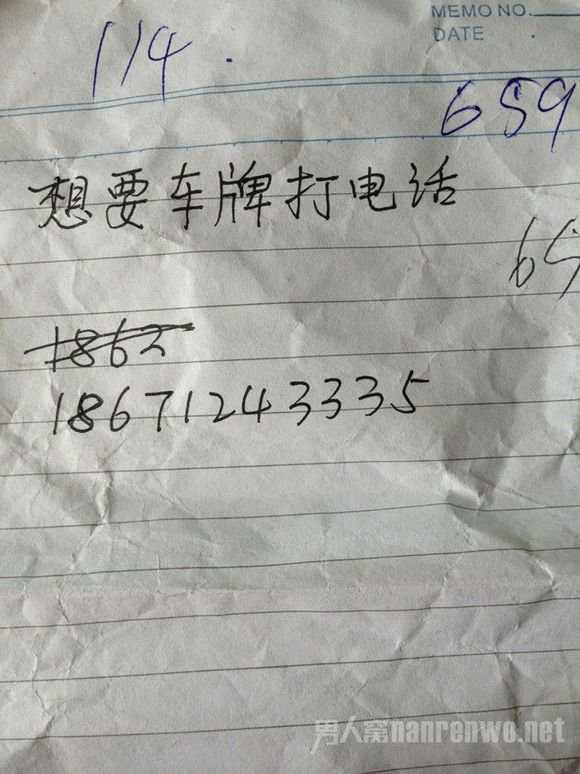 MEMO NO.
DATE
114.
659
想要车牌打电话
65
1862
18671243335
男人窝nanrenwo.net